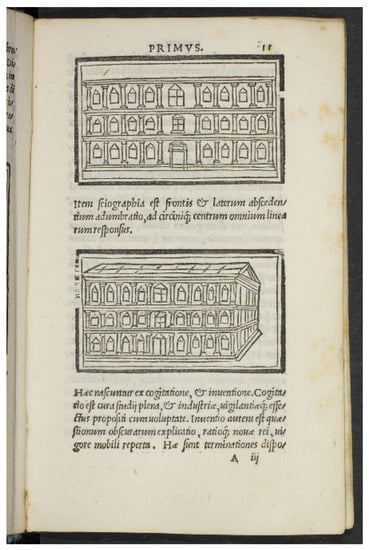 PRIMVS. 11
Item sciographia est frontis & laterum absceden-
tium adumbratio, ad circiniq; centrum omnium linea
rum responsus.
Hæc nascuntur ex cogitatione, & inuentione. Cogita-
tio est cura studij plena, & industriæ, uigilantiæq; effe-
ctus propositi cum uoluptate. Inuentio autem est quæ-
stionum obscurarum explicatio, ratioq; nouæ rei, ui-
gore mobili reperta. Hæ sunt terminationes dispo-
A iij